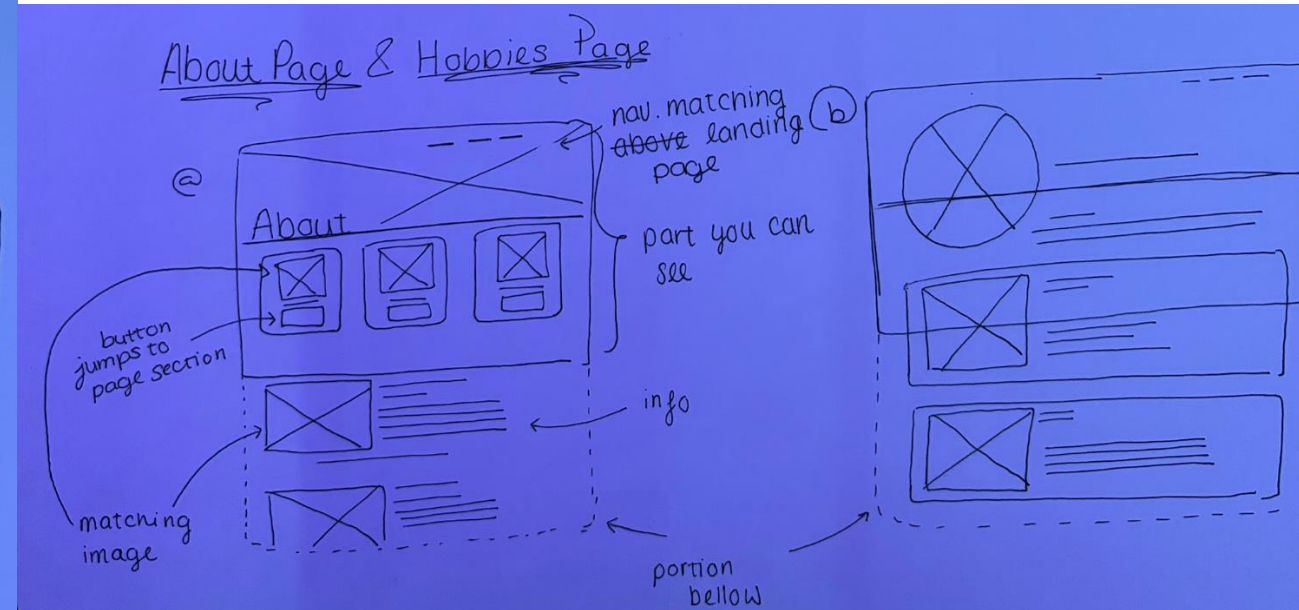 About Page & Hobbies Page
nav. matching
above landing
page
part you can
see
@
About
button
jumps to
page section
info
matching
image
portion
bellow
b